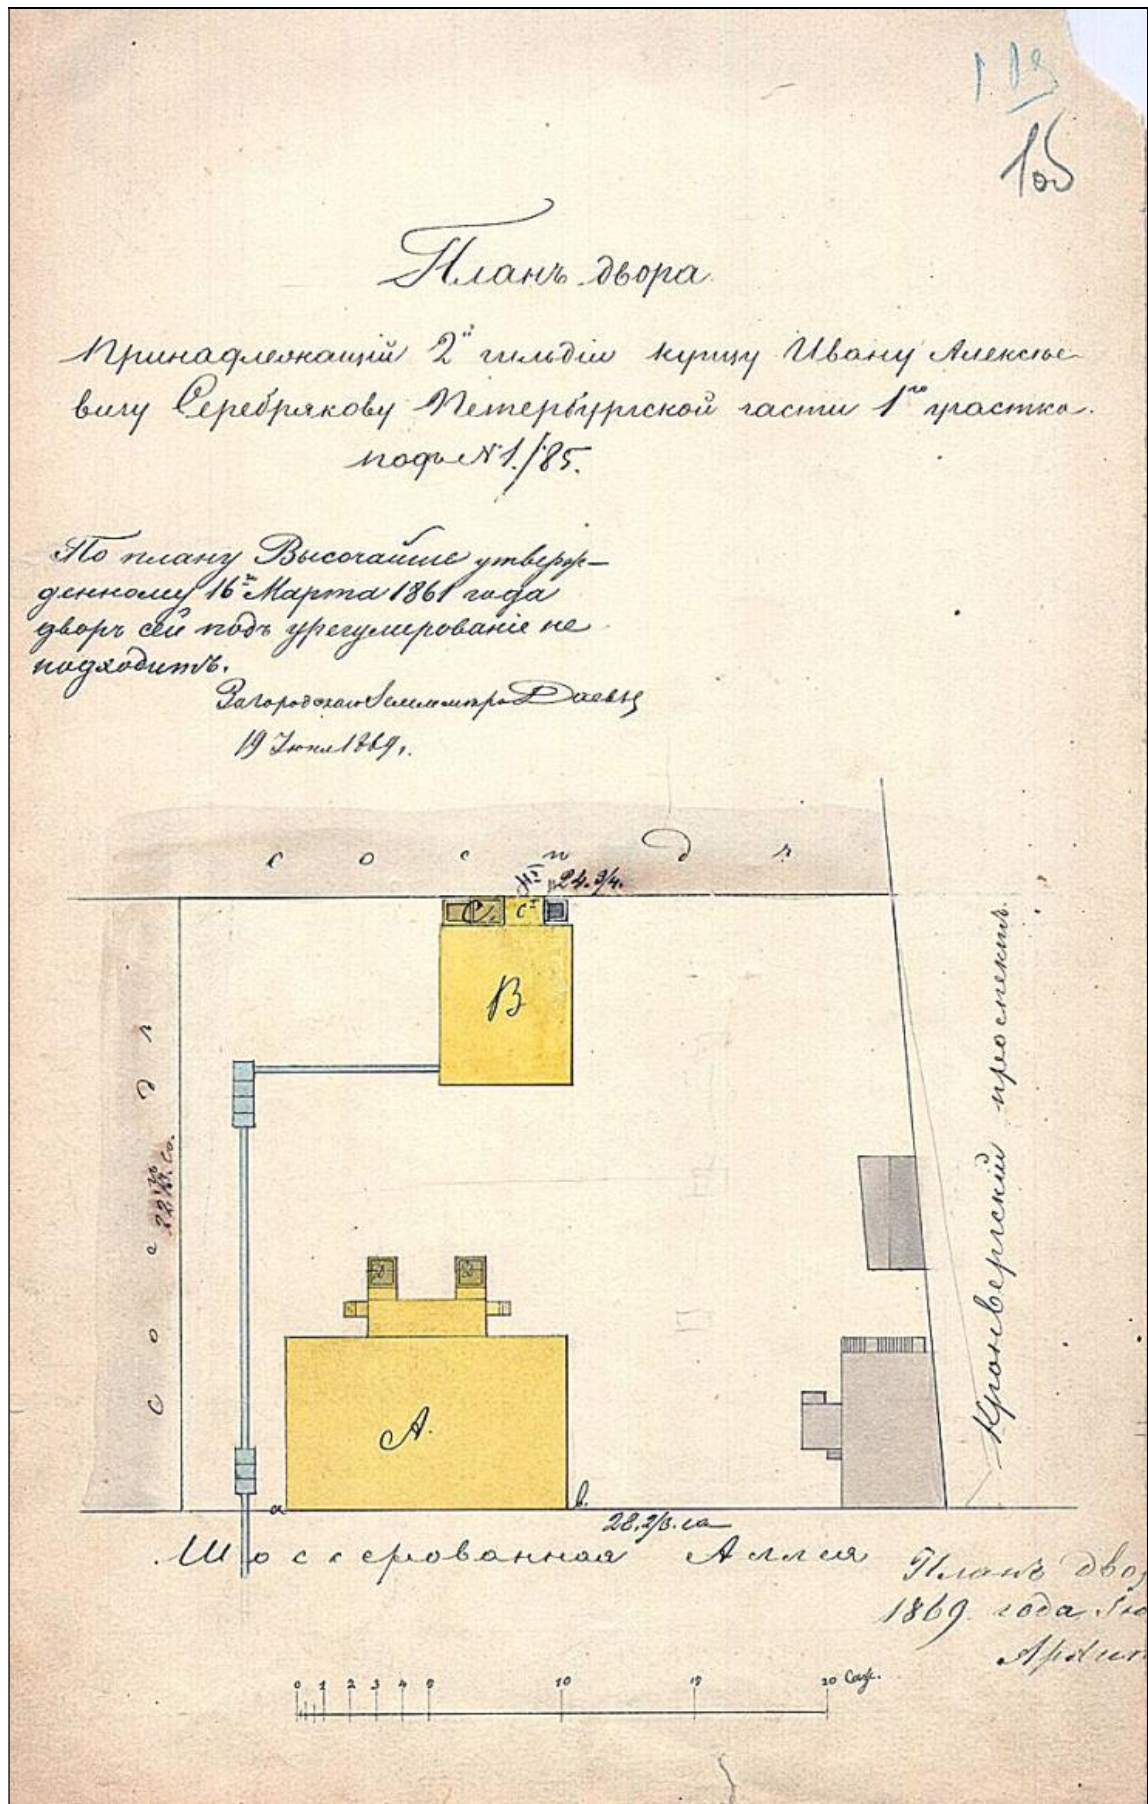 105
Планъ двора
Принадлежащій 2й гильдіи купцу Ивану Алексѣе-
вичу Серебрякову Петербургской части 1го участка
подъ №1./85.
По плану Высочайше утверж-
денному 16го Марта 1861 года
дворъ сей подъ урегулированіе не
подходитъ.
19 Іюня 1869 г.
Сосѣдъ
24.3/4.
C. C
B
Сосѣдъ
Кронвергскій проспектъ.
A.
a
b.
28.2/3. са
Шоссерованная Аллея
Планъ дво
1869. года Ію
0 1 2 3 4 5 10 15 20 Саж.